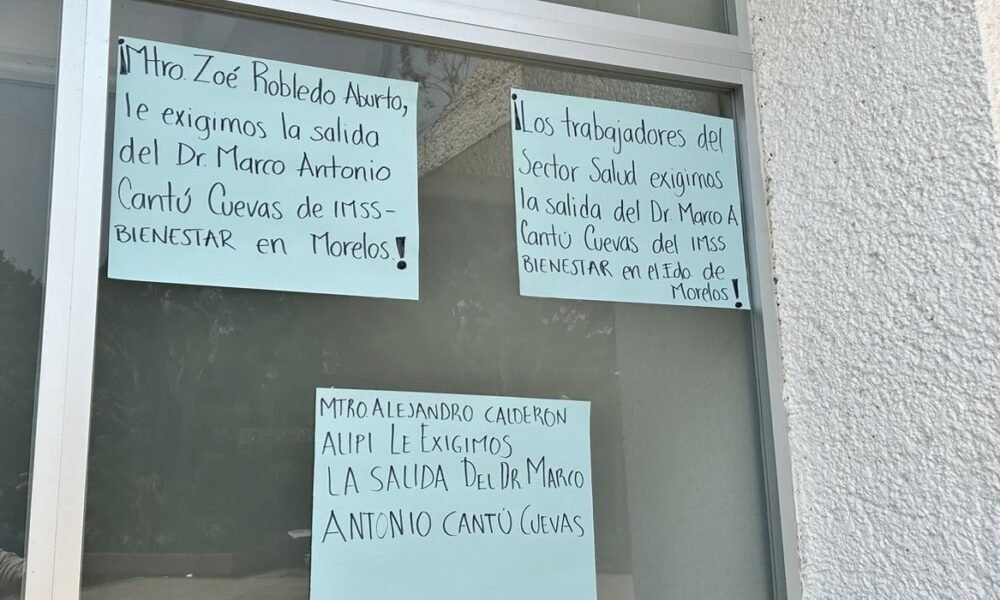 ¡Mtro. Zoé Robledo Aburto,
le exigimos la salida
del Dr. Marco Antonio
Cantú Cuevas de IMSS-
BIENESTAR en Morelos!
¡Los trabajadores del
Sector Salud exigimos
la salida del Dr. Marco A
Cantú Cuevas del IMSS
BIENESTAR en el Edo. de
Morelos!
MTRO. ALEJANDRO CALDERON
ALIPI LE EXIGIMOS
LA SALIDA DEL DR MARCO
ANTONIO CANTÚ CUEVAS